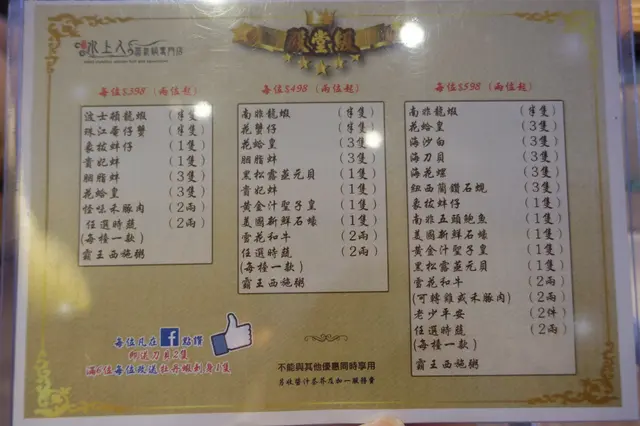 水上人
殿堂級
每位$398 (兩位起)
波士頓龍蝦 (半隻)
珠江膏仔蟹 (半隻)
象拔蚌仔 (1隻)
貴妃蚌 (1隻)
胭脂蚌 (3隻)
花蛤皇 (3隻)
怪味禾豚肉 (2兩)
任選時蔬 (2兩)
(每檯一款)
霸王西施粥
每位$498 (兩位起)
南非龍蝦 (半隻)
花蟹仔 (半隻)
花蛤皇 (3隻)
胭脂蚌 (3隻)
黑松露蒸元貝 (1隻)
貴妃蚌 (1隻)
黃金汁聖子皇 (1隻)
美國新鮮石蠔 (1隻)
雪花和牛 (2兩)
任選時蔬 (2兩)
(每檯一款)
霸王西施粥
每位$598 (兩位起)
南非龍蝦 (半隻)
花蛤皇 (3隻)
海沙白 (3隻)
海刀貝 (3隻)
海花螺 (3隻)
紐西蘭鑽石蜆 (3隻)
象拔蚌仔 (1隻)
南非五頭鮑魚 (1隻)
美國新鮮石蠔 (1隻)
黃金汁聖子皇 (1隻)
黑松露蒸元貝 (1隻)
雪花和牛 (2兩)
(可轉雞或禾豚肉) (2兩)
老少平安 (2件)
任選時蔬 (2兩)
(每檯一款)
霸王西施粥
每位凡在f點讚
即送刀貝2隻
滿6位每位改送牡丹蝦刺身1隻
不能與其他優惠同時享用
另收醬汁茶芥及加一服務費